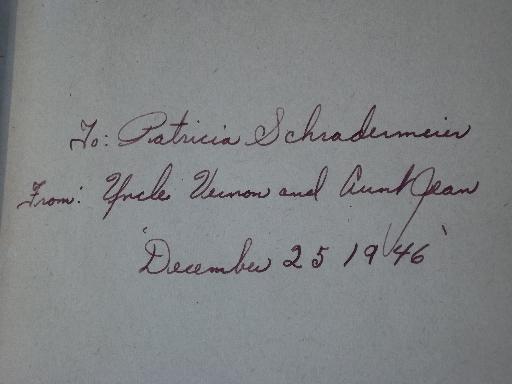 To: Patricia Schradermeier
From: Uncle Vernon and Aunt Jean
"December 25 1946"